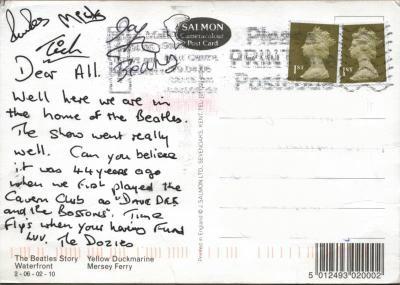 Mick
Tich
SALMON
Cameracolour
Post Card
Please
PRINT
Postcode
1ST
1ST
Dear All.
Well here we are in
the home of the Beatles.
The show went really
well. Can you believe
it was 44 years ago
when we first played the
Cavern Club as "DAVE DEE
and the Bossons". Time
flys when your having Fund
Luv. The Dozies
Printed in England © J. SALMON LTD., SEVENOAKS, KENT, TEL
The Beatles Story Yellow Duckmarine
Waterfront Mersey Ferry
2-06-02-10
5 012493 020002